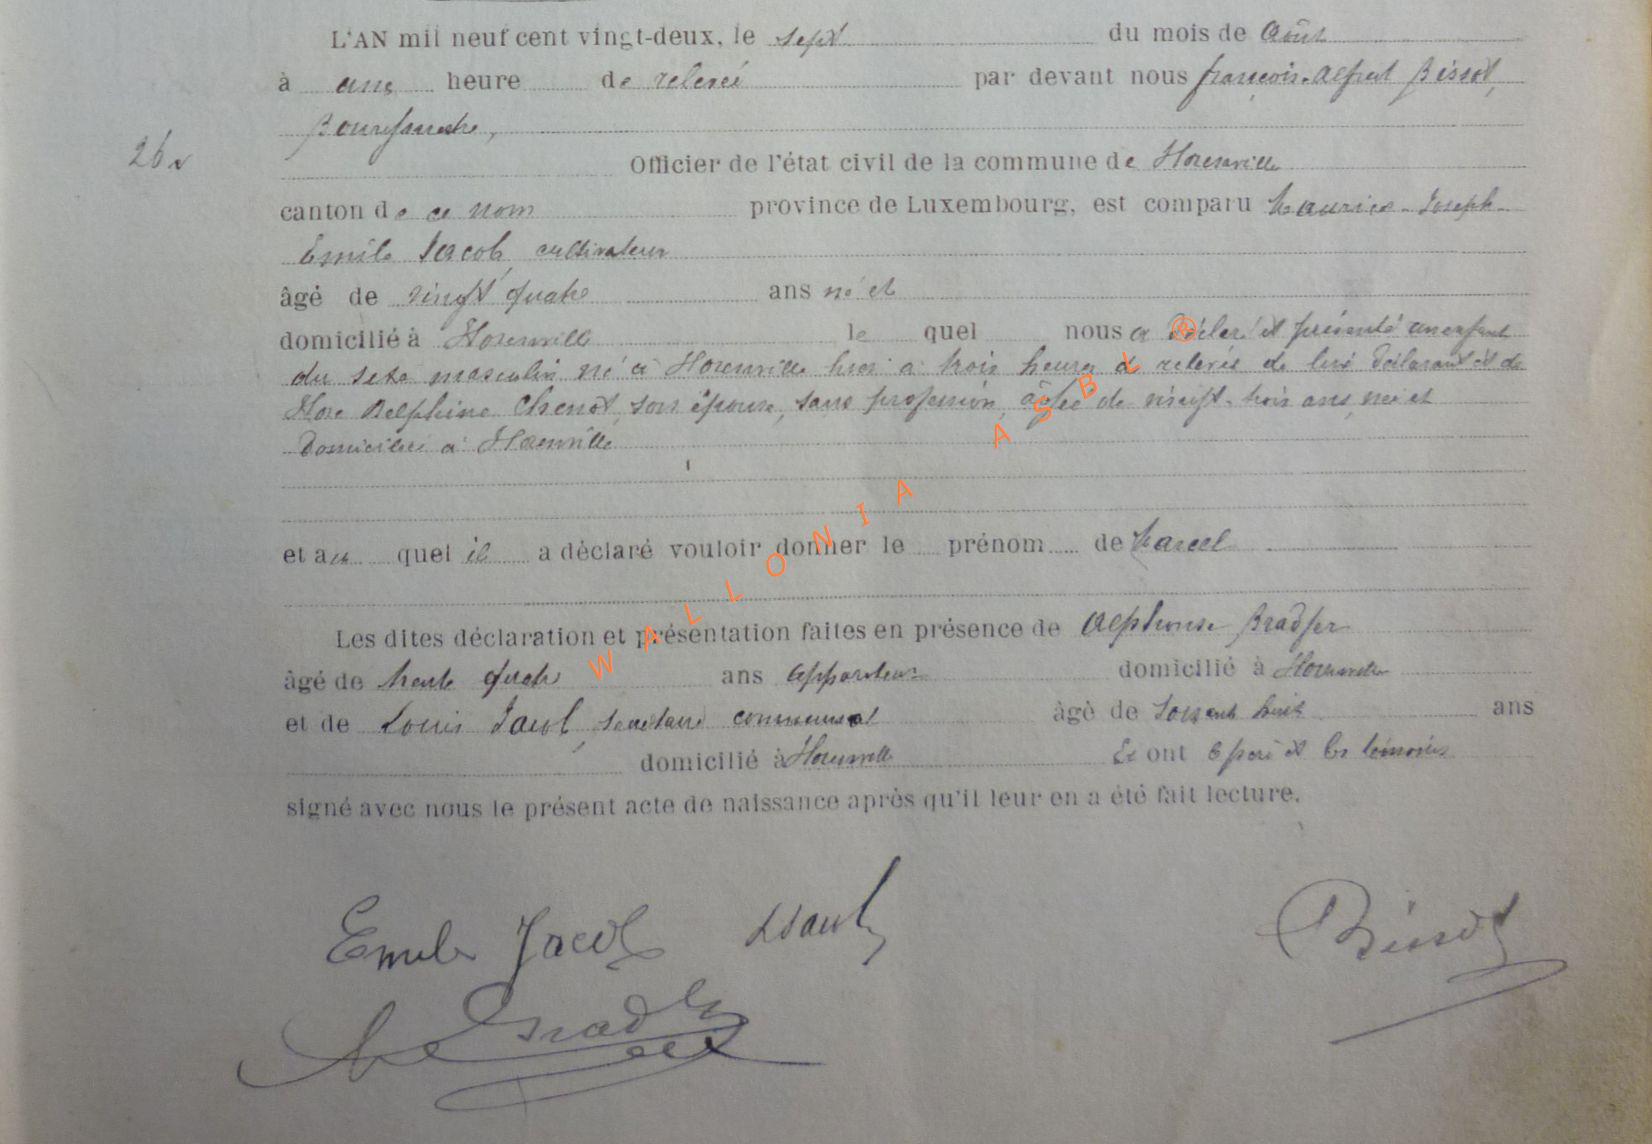 L'AN mil neuf cent vingt-deux, le sept du mois de Août
à heure de relevé par devant nous françois-Alfred Bissot,
Bourgmestre,
26
Officier de l'état civil de la commune de
canton de ce nom province de Luxembourg, est comparu Maurice-Joseph-
Emile Jacob, cultivateur
âgé de vingt quatre ans né et
domicilié à le quel nous a déclaré et présenté un enfant
du sexe masculin né à hier à trois heures de relevée de lui déclarant et de
Delphine Chenot, son épouse, sans profession, âgée de vingt-trois ans, née et
domiciliée à
et au quel il a déclaré vouloir donner le prénom de Marcel
Les dites déclaration et présentation faites en présence de Alphonse Bradfer
âgé de trente quatre ans appariteur domicilié à
et de Louis Jacob, secrétaire communal âgé de soixante huit ans
domicilié à Et ont le père et les témoins
signé avec nous le présent acte de naissance après qu'il leur en a été fait lecture.
Emile Jacob LJacob Bissot
WALLONIA ASBL ®